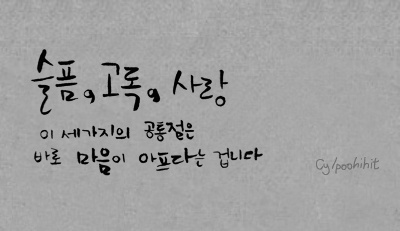 슬픔, 고독, 사랑
이 세가지의 공통점은
바로 마음이 아프다는 겁니다
Cy/poohihit